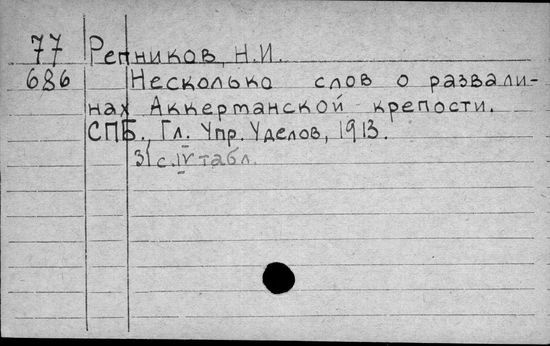 77 Репников, Н.И.
686 Несколько слов о развали-
нах Аккерманской крепости.
СПБ., Гл. Упр. Уделов, 1913.
31 с. IV табл.